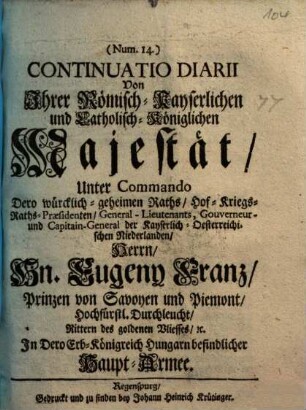 104
(Num. 14.)
CONTINUATIO DIARII
Von
Ihrer Römisch-Kayserlichen
und Catholisch-Königlichen
Majestät/
Unter Commando
Dero würcklich-geheimen Raths/ Hof-Kriegs-
Raths-Præsidenten/ General-Lieutenants, Gouverneur-
und Capitain-General der Kayserlich-Oesterreichi-
schen Niederlanden/
Herrn/
Hn. Eugeny Franz/
Prinzen von Savoyen und Piemont/
Hochfürstl. Durchleucht/
Rittern des goldenen Vliesses/ ꝛc.
In Dero Erb-Königreich Hungarn befindlicher
Haupt-Armee.
Regenspurg/
Gedruckt und zu finden bey Johann Heinrich Krütinger.